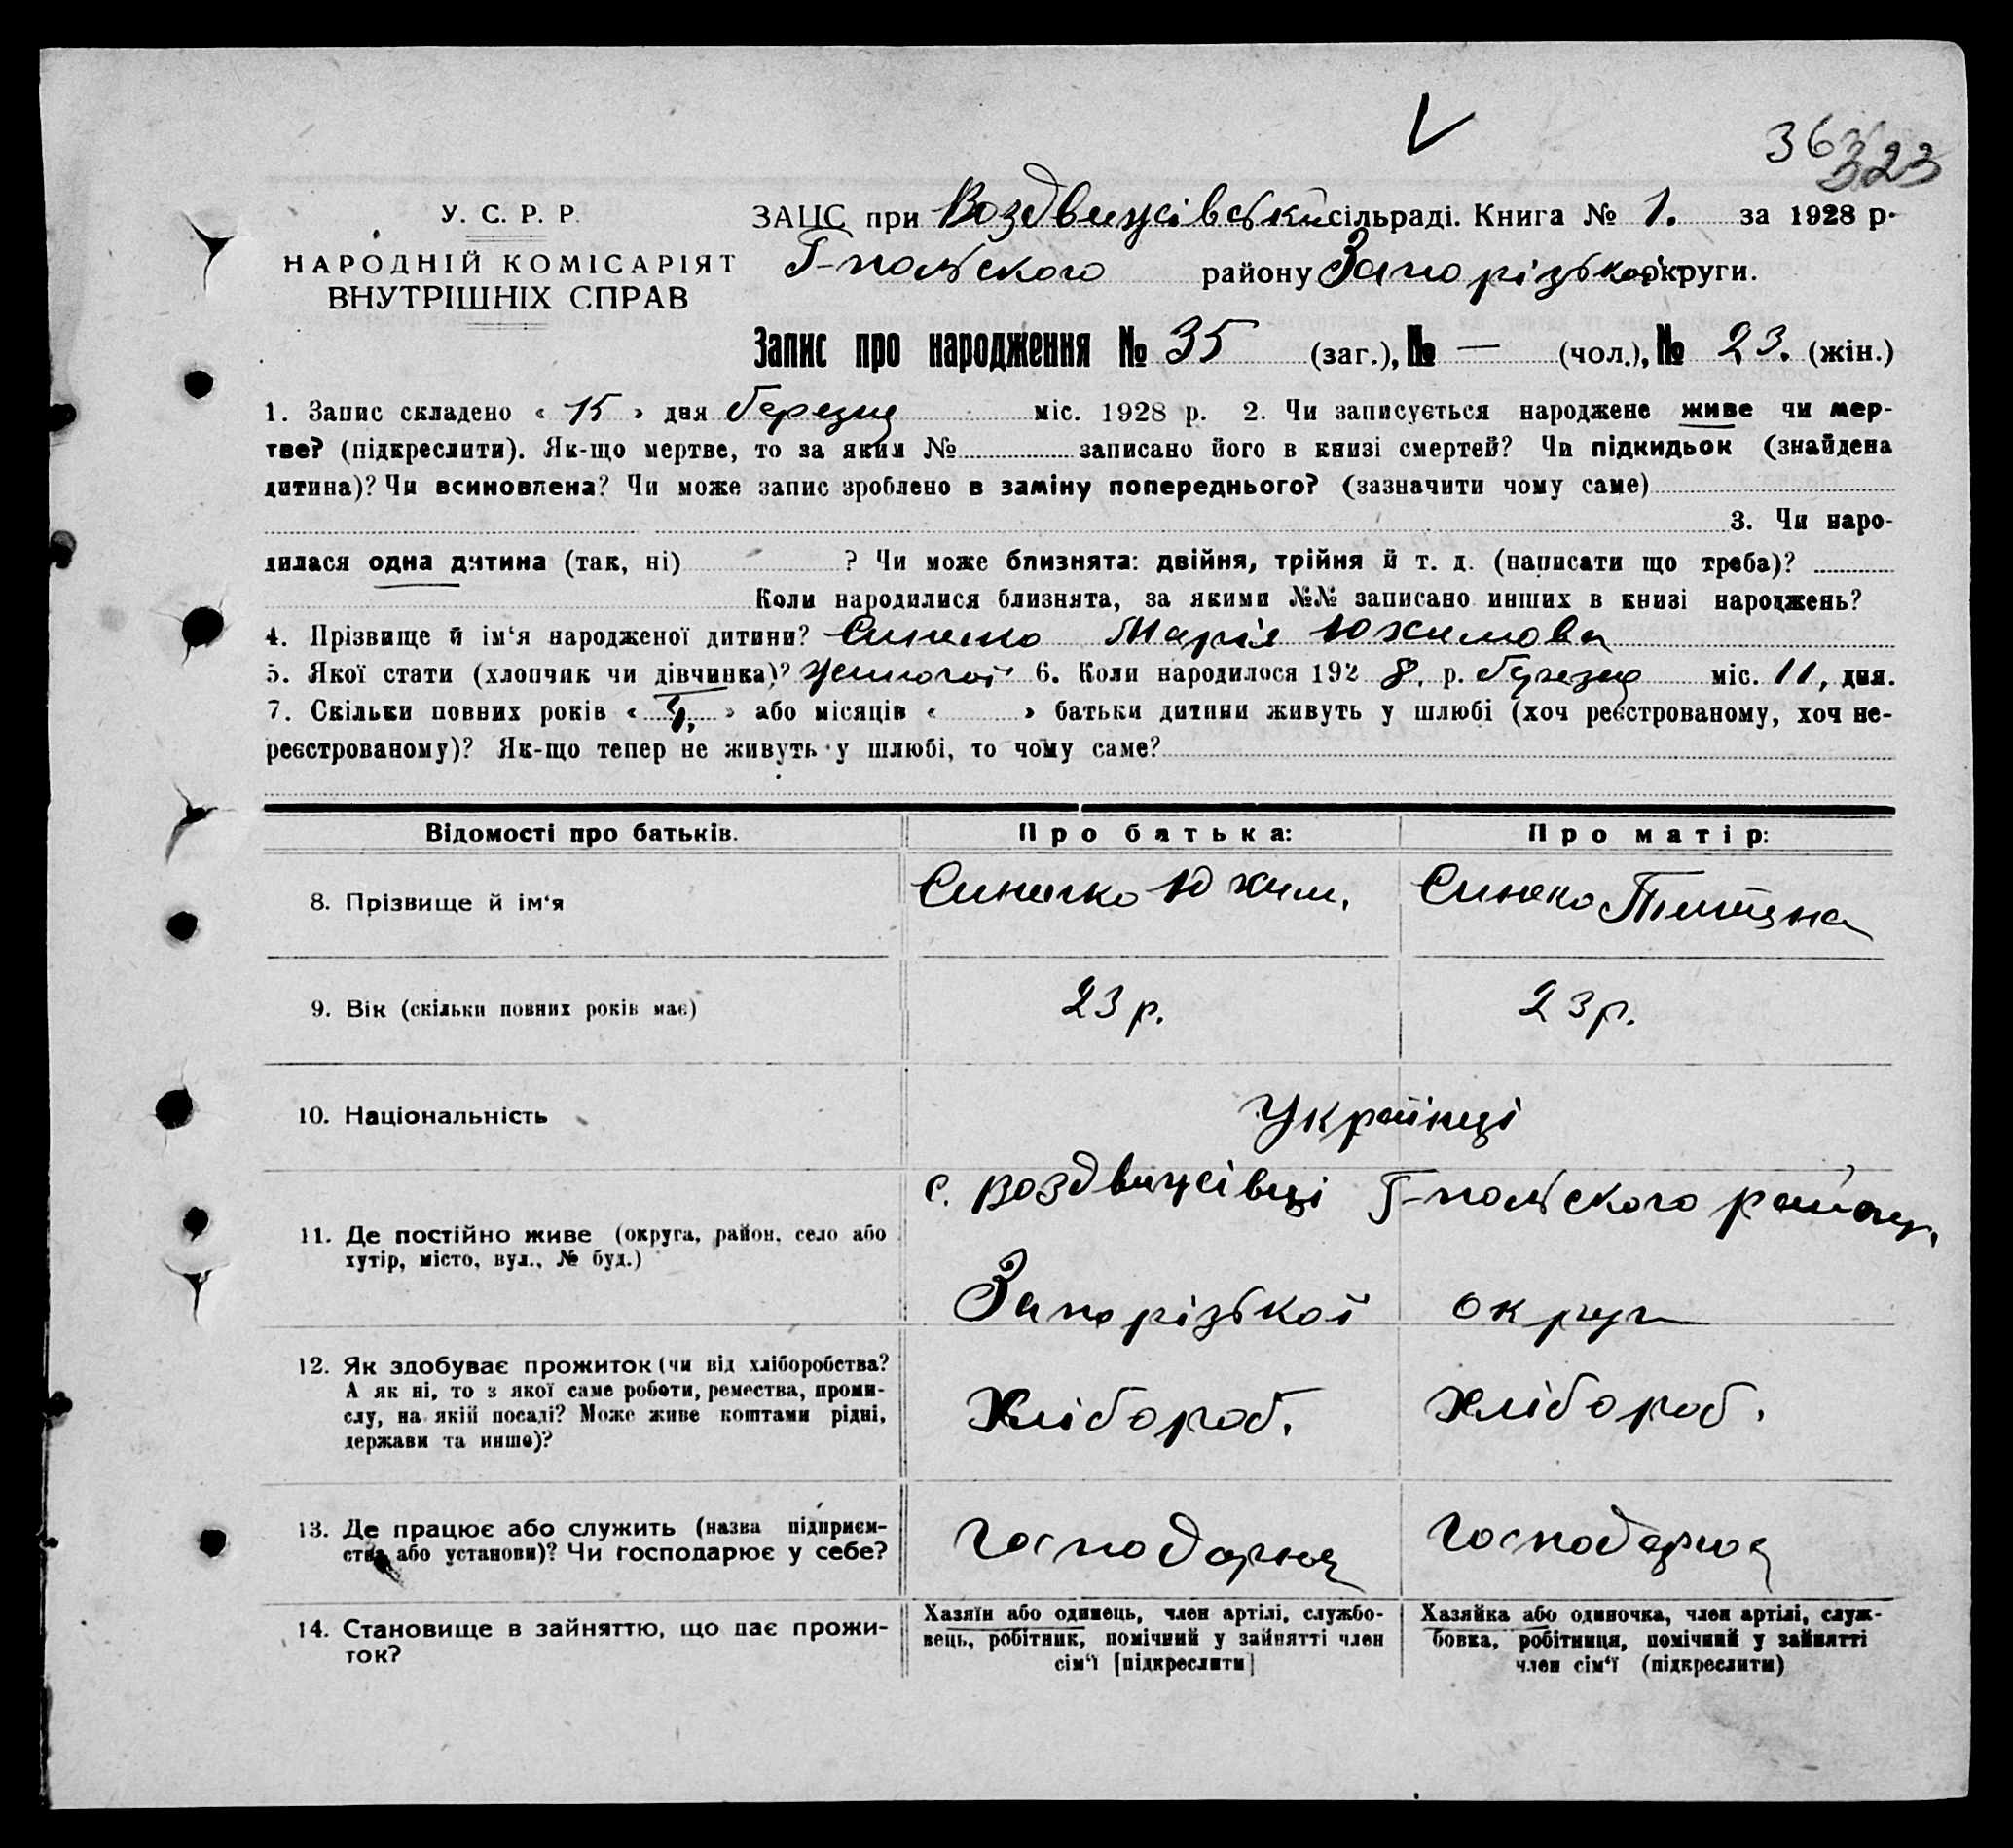 V
363
323
У. С. Р. Р.
НАРОДНІЙ КОМІСАРІЯТ
ВНУТРІШНІХ СПРАВ
ЗАЦС при Воздвижівській сільраді. Книга № 1. за 1928 р.
Г-польского району Запорізької округи.
Запис про народження № 35 (заг.), № — (чол.), № 23. (жін.)
1. Запис складено « 15 » дня березня міс. 1928 р. 2. Чи записується народжене живе чи мер-
тве? (підкреслити). Як-що мертве, то за яким № записано його в книзі смертей? Чи підкидьок (знайдена
дитина)? Чи всиновлена? Чи може запис зроблено в заміну попереднього? (зазначити чому саме)
3. Чи наро-
дилася одна дитина (так, ні) ? Чи може близнята: двійня, трійня й т. д. (написати що треба)?
Коли народилися близнята, за якими №№ записано инших в книзі народжень?
4. Прізвище й ім‘я народженої дитини? Синенко Марія Юхимова
5. Якої стати (хлопчик чи дівчинка)? Жиночої 6. Коли народилося 192 8. р. березня міс. 11, дня.
7. Скільки повних років « » або місяців « » батьки дитини живуть у шлюбі (хоч реєстрованому, хоч не-
реєстрованому)? Як-що тепер не живуть у шлюбі, то чому саме?
Відомості про батьків. Про батька: Про матір:
8. Прізвище й ім‘я Синенко Юхим. Синенко Титяна
9. Вік (скільки повних років має) 23 р. 23 р.
10. Національність Українці
11. Де постійно живе (округа, район, село або
хутір, місто, вул., № буд.)
с. Воздвижівці Г-польского району,
Запорізької округи
12. Як здобуває прожиток (чи від хліборобства?
А як ні, то з якої саме роботи, ремества, проми-
слу, на якій посаді? Може живе коштами рідні,
держави та инше)?
Хлібороб. Хлібороб.
13. Де працює або служить (назва підприєм-
ства або установи)? Чи господарює у себе?
Господарює Господарює
14. Становище в зайняттю, що дає прожи-
ток?
Хазяїн або одинець, член артілі, службо-
вець, робітник, помічний у зайнятті член
сім‘ї [підкреслити]
Хазяйка або одиночка, член артілі, служ-
бовка, робітниця, помічний у зайнятті
член сім‘ї (підкреслити)